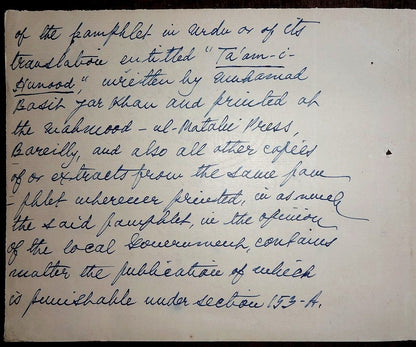 of the pamphlet in Urdu or of its
translation entitled "Ta'am-i-
Hunood," written by Muhamad
Basit Yar Khan and printed at
the Mahmood-ul-Matabi Press
Bareilly, and also all other copies
of or extracts from the same pam
-phlet wherever printed, in as much
the said pamphlet, in the opinion
of the local Government, contains
matter the publication of which
is punishable under section 153-A.